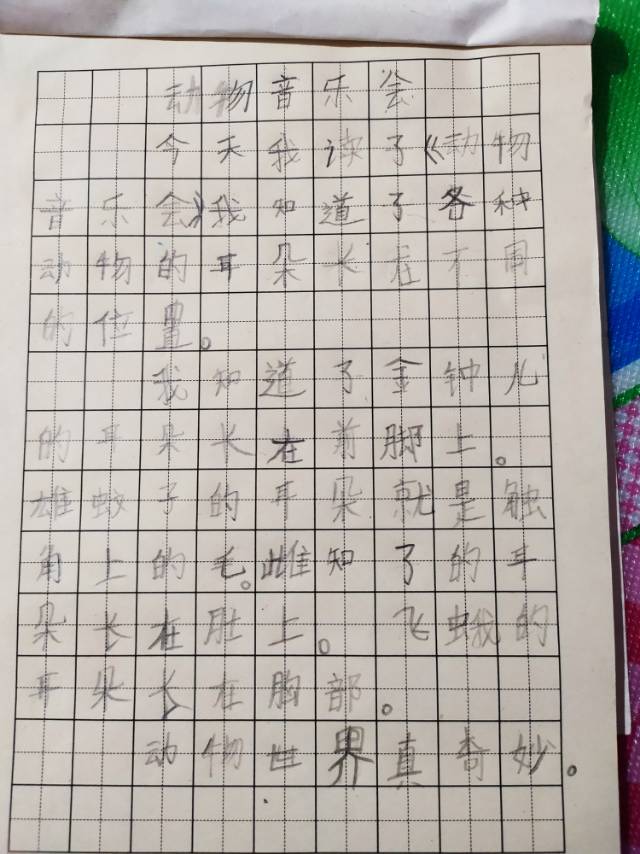 动物音乐会
今天我读了《动物
音乐会》我知道了各种
动物的耳朵长在不同
的位置。
我知道了金钟儿
的耳朵长在前脚上。
雄蚊子的耳朵就是触
角上的毛。雌知了的耳
朵长在肚上。飞蛾的
耳朵长在胸部。
动物世界真奇妙。